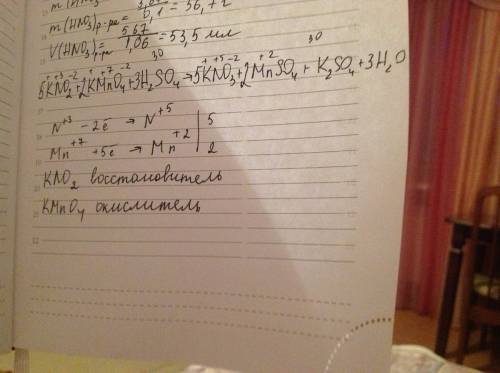 m(HNO₃)р-ра = 0,1 = 56,72
V(HNO₃)р-ра = 5,67 / 1,06 = 53,5 мл
30 30
5KNO₂ + 2KMnO₄ + 3H₂SO₄ → 5KNO₃ + 2MnSO₄ + K₂SO₄ + 3H₂O
N⁺³ − 2ē → N⁺⁵ | 5
Mn⁺⁷ + 5ē → Mn⁺² | 2
KNO₂ восстановитель
KMnO₄ окислитель